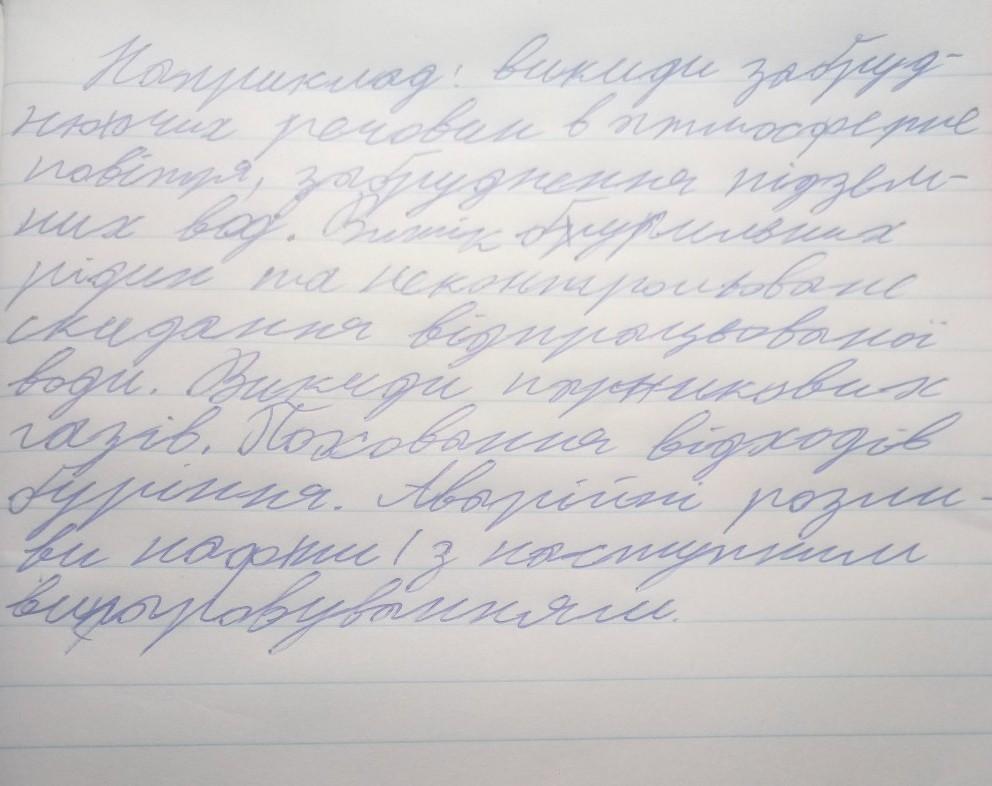 Наприклад: викиди забруд-
нюючих речован в атмосферне
повітря, забруднення підзем-
них вод. Витік бурильних
рідин та неконтрольоване
скидання відпрацьованої
води. Викиди парникових
газів. Поховання відходів
буріння. Аварійні розли-
ви нафти і з наступним
випаровуванням.